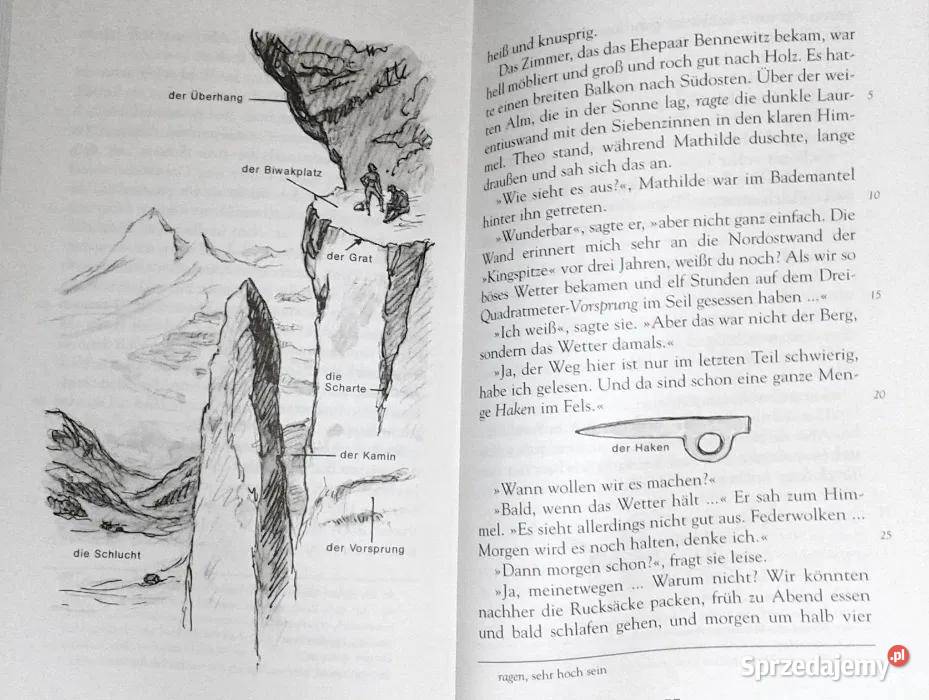 der Überhang
der Biwakplatz
der Grat
die
Scharte
der Kamin
der Vorsprung
die Schlucht
heiß und knusprig.
Das Zimmer, das das Ehepaar Bennewitz bekam, war
hell möbliert und groß und roch gut nach Holz. Es hat-
te einen breiten Balkon nach Südosten. Über der wei-
ten Alm, die in der Sonne lag, ragte die dunkle Laur- 5
entiuswand mit den Siebenzinnen in den klaren Him-
mel. Theo stand, während Mathilde duschte, lange
draußen und sah sich das an.
»Wie sieht es aus?«, Mathilde war im Bademantel
hinter ihn getreten. 10
»Wunderbar«, sagte er, »aber nicht ganz einfach. Die
Wand erinnert mich sehr an die Nordostwand der
»Kingspitze« vor drei Jahren, weißt du noch? Als wir so
böses Wetter bekamen und elf Stunden auf dem Drei-
Quadratmeter-Vorsprung im Seil gesessen haben ...« 15
»Ich weiß«, sagte sie. »Aber das war nicht der Berg,
sondern das Wetter damals.«
»Ja, der Weg hier ist nur im letzten Teil schwierig,
habe ich gelesen. Und da sind schon eine ganze Men-
ge Haken im Fels.« 20
der Haken
»Wann wollen wir es machen?«
»Bald, wenn das Wetter hält ...« Er sah zum Him-
mel. »Es sieht allerdings nicht gut aus. Federwolken ...
Morgen wird es noch halten, denke ich.« 25
»Dann morgen schon?«, fragt sie leise.
»Ja, meinetwegen ... Warum nicht? Wir könnten
nachher die Rucksäcke packen, früh zu Abend essen
und bald schlafen gehen, und morgen um halb vier
ragen, sehr hoch sein
Sprzedajemy.pl